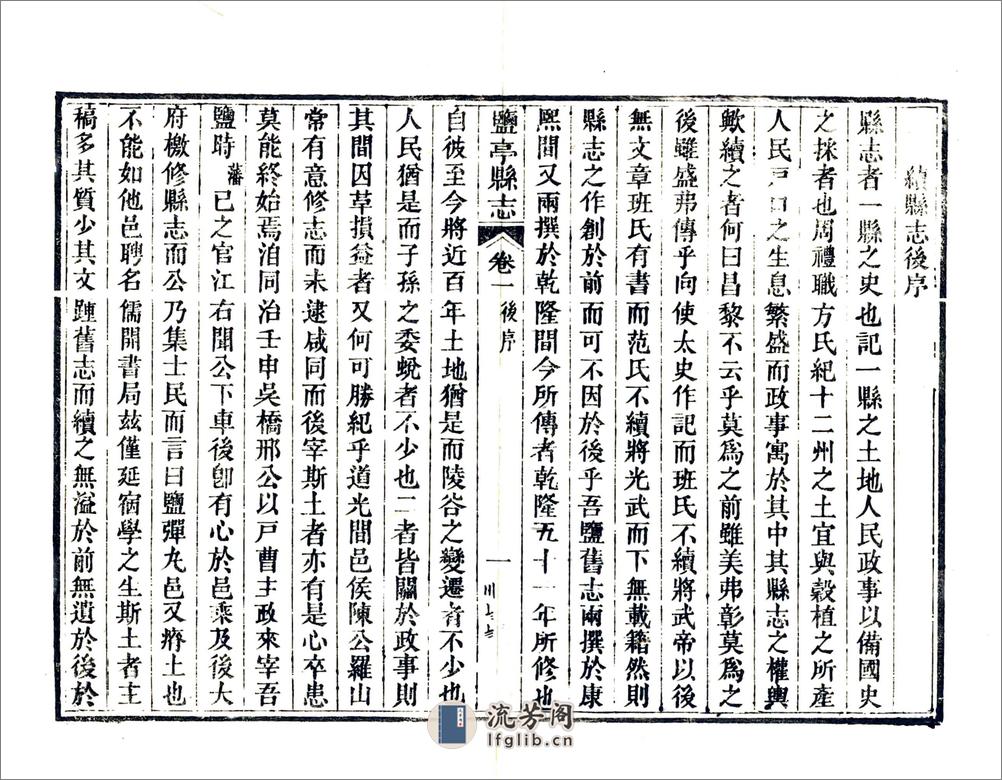 續縣志後序
縣志者一縣之史也記一縣之土地人民政事以備國史
之採者也周禮職方氏紀十二州之土宜與穀植之所產
人民戶口之生息繁盛而政事寓於其中其縣志之權輿
歟續之者何曰昌黎不云乎莫爲之前雖美弗彰莫爲之
後雖盛弗傳乎向使太史作記而班氏不續將武帝以後
無文章班氏有書而范氏不續將光武而下無載籍然則
縣志之作創於前而可不因於後乎吾鹽舊志兩撰於康
熙間又兩撰於乾隆間今所傳者乾隆五十一年所修也
鹽亭縣志 卷一 後序 一
自彼至今將近百年土地猶是而陵谷之變遷者不少也
人民猶是而子孫之委蛻者不少也二者皆關於政事則
其間因革損益者又何可勝紀乎道光間邑侯陳公羅山
常有意修志而未逮咸同而後宰斯土者亦有是心卒患
莫能終始焉洎同治壬申吳橋邢公以戶曹主政來宰吾
鹽時藩已之官江右聞公下車後卽有心於邑乘及後大
府檄修縣志而公乃集士民而言曰鹽彈丸邑又瘠土也
不能如他邑聘名儒開書局玆僅延宿學之生斯土者主
稿多其質少其文踵舊志而續之無溢於前無遺於後於
流芳阁
lfglib.cn